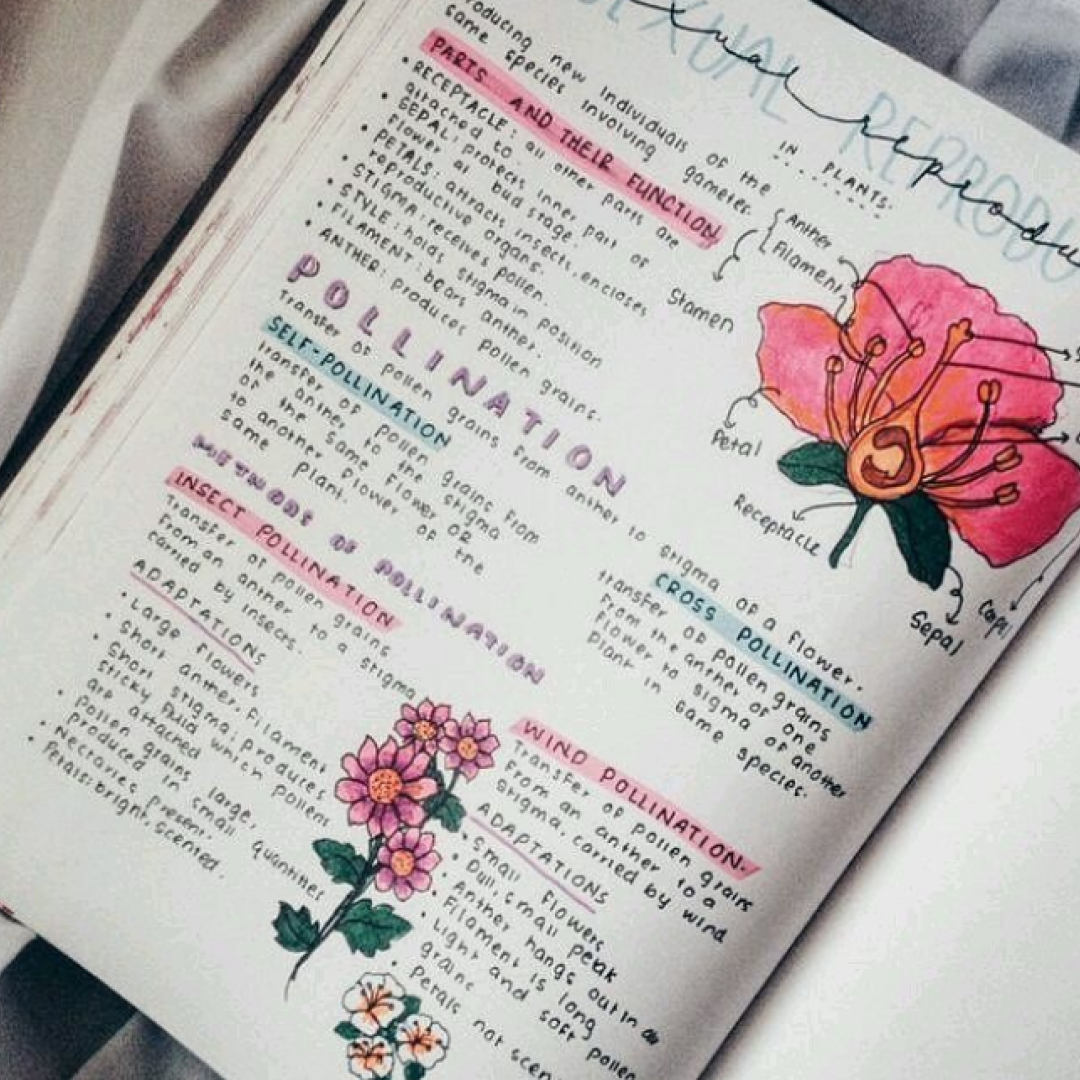 SEXUAL REPRODU
sexual reprodu
IN PLANTS.
roducing new individuals of the
same species involving gametes.
PARTS AND THEIR FUNCTION
• RECEPTACLE: all other parts are
attached to.
• SEPAL: protects inner part of
flower at bud stage.
• PETALS: attracts insects, encloses
reproductive organs.
• STIGMA: receives pollen.
• STYLE: holds stigma in position
• FILAMENT: bears anther.
• ANTHER: produces pollen grains.
Anther
Filament
Stamen
Petal
Receptacle
Sepal
POLLINATION
Transfer of pollen grains from anther to stigma of a flower.
SELF-POLLINATION
transfer of pollen grains from
the anther to the stigma
of the same flower OR
to another flower of the
same plant.
CROSS POLLINATION
transfer of pollen grains
from the anther of one
flower to sigma of another
plant in same species.
METHODS OF POLLINATION
INSECT POLLINATION
Transfer of pollen grains
from an anther to a stigma
carried by insects.
ADAPTATIONS
• Large flowers
• Short anther, filament
• Short stigma; produces
sticky fluid which pollens
are attached
• Pollen grains large,
produced in small quantities
• Nectaries present.
• Petals: bright, scented.
WIND POLLINATION.
Transfer of pollen grains
from an anther to a
stigma, carried by wind
ADAPTATIONS
• small flowers
• Dull, small petals
• Anther hangs out in
• Filament is long
• Light and soft pollen
grains
• Petals not scen